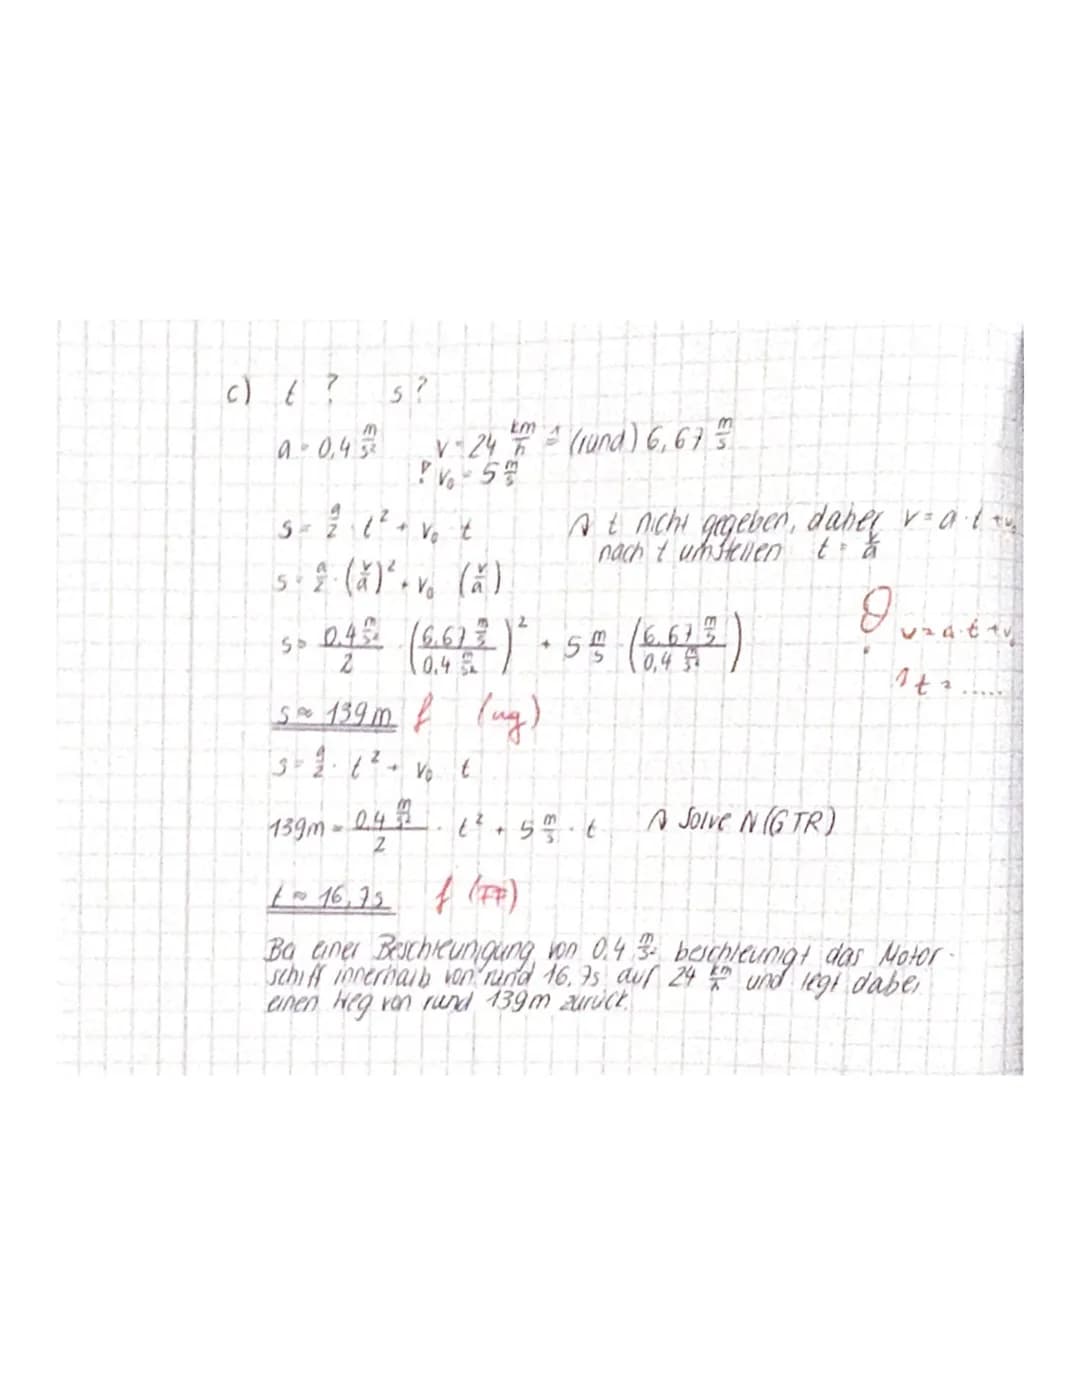 c) t ? s ?
a = 0,4 m/s² v = 24 km/h ≙ (rund) 6,67 m/s
? v₀ = 5 m/s
s = a/2 · t² + v₀ · t ↯ t nicht gegeben, daher v = a · t + v₀
nach t umstellen t = v/a
s = a/2 · (v/a)² + v₀ · (v/a)
s = (0,4 m/s²)/2 · ((6,67 m/s)/(0,4 m/s²))² + 5 m/s · ((6,67 m/s)/(0,4 m/s²))
! v = a · t + v₀
t = .....
s ≈ 139 m f (ug)
s = a/2 · t² + v₀ · t
139m = (0,4 m/s²)/2 · t² + 5 m/s · t Solve N (GTR)
t ≈ 16,7s f (FF)
Bei einer Beschleunigung von 0,4 m/s² beschleunigt das Motor-
schiff innerhalb von rund 16,7s auf 24 km/h und legt dabei
einen Weg von rund 139m zurück.